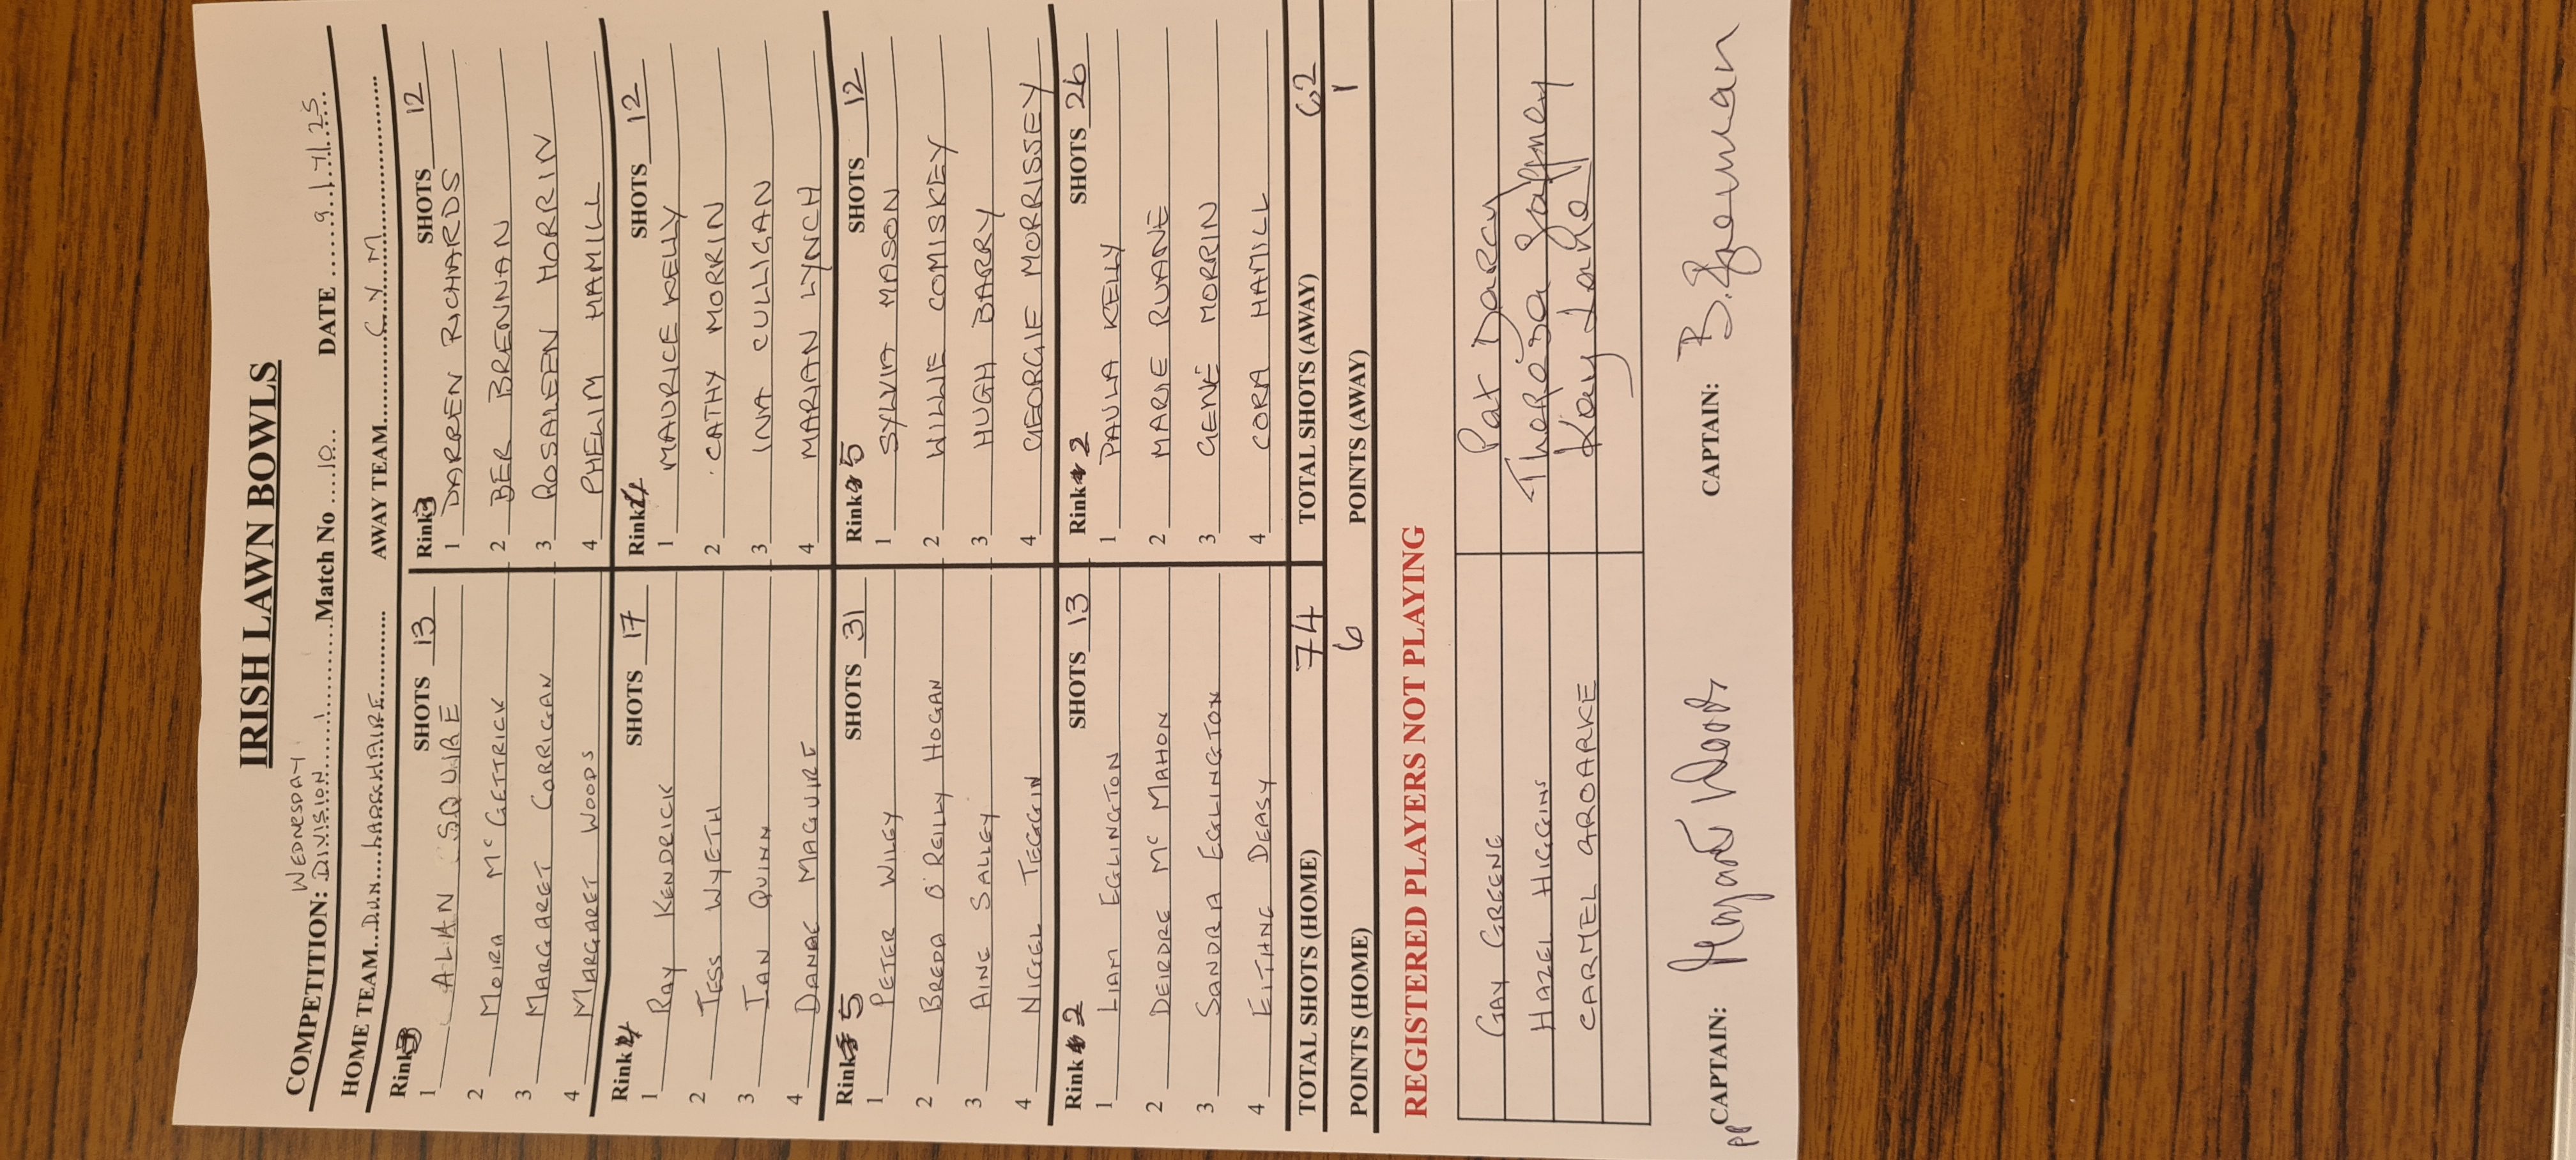 IRISH LAWN BOWLS
WEDNESDAY
COMPETITION: DIVISION 1 Match No 10 DATE 9/7/25
HOME TEAM DUN LAOGHAIRE AWAY TEAM C Y M
Rink 3 SHOTS 13 Rink 3 SHOTS 12
1 ALAN SQUIRE 1 DARREN RICHARDS
2 MOIRA Mc GETTRICK 2 BER BRENNAN
3 MARGARET CORRIGAN 3 ROSALEEN HORRIN
4 MARGARET WOODS 4 PHELIM HAMILL
Rink 4 SHOTS 17 Rink 4 SHOTS 12
1 RAY KENDRICK 1 MAURICE KELLY
2 TESS WYETH 2 CATHY MORRIN
3 IAN QUINN 3 INA CULLIGAN
4 DANAE MAGUIRE 4 MARIAN LYNCH
Rink 5 SHOTS 31 Rink 5 SHOTS 12
1 PETER WILEY 1 SYLVIA MASON
2 BREDA O'REILLY HOGAN 2 WILLIE COMISKEY
3 AINE SALLEY 3 HUGH BARRY
4 NIGEL TEGGIN 4 GEORGIE MORRISSEY
Rink 2 SHOTS 13 Rink 2 SHOTS 26
1 LIAM EGLINGTON 1 PAULA KELLY
2 DEIRDRE Mc MAHON 2 MARIE RUANE
3 SANDRA EGLINGTON 3 GENE MORRIN
4 EITHNE DEASY 4 CORA HAMILL
TOTAL SHOTS (HOME) 74 TOTAL SHOTS (AWAY) 62
POINTS (HOME) 6 POINTS (AWAY) 1
REGISTERED PLAYERS NOT PLAYING
GAY GREENE Pat Darcy
HAZEL HIGGINS Theresa Gaffney
CARMEL GROARKE Kay Lahe
pp CAPTAIN: Margaret Woods CAPTAIN: B.